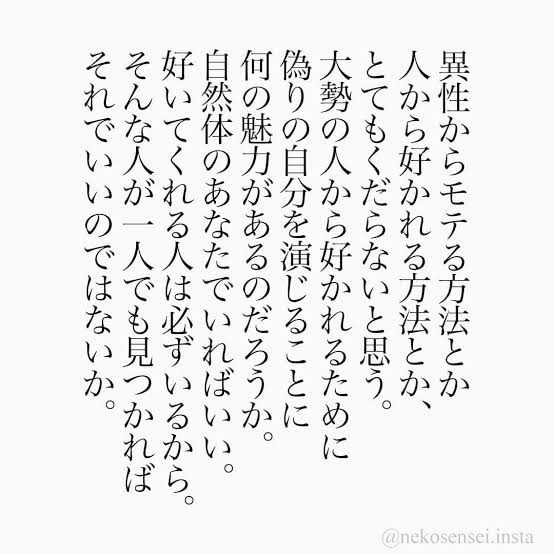 異性からモテる方法とか
人から好かれる方法とか、
とてもくだらないと思う。
大勢の人から好かれるために
偽りの自分を演じることに
何の魅力があるのだろうか。
自然体のあなたでいればいい。
好いてくれる人は必ずいるから。
そんな人が一人でも見つかれば
それでいいのではないか。
@nekosensei.insta